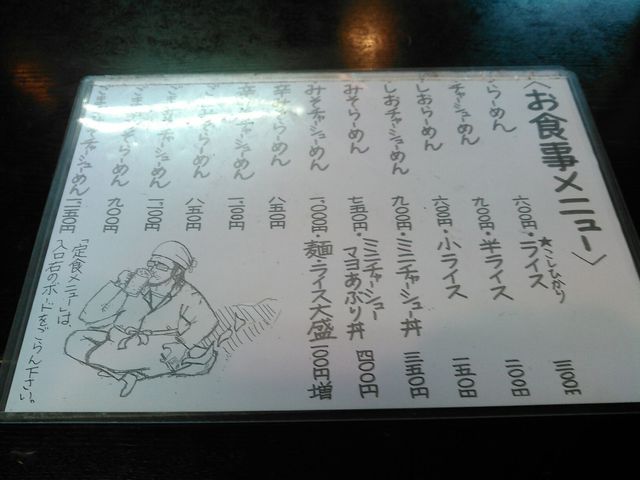 〈お食事メニュー〉
らーめん 六〇〇円・ライス ★こしひかり 三〇〇円
チャーシューめん 九〇〇円・半ライス 二〇〇円
しおらーめん 六〇〇円・小ライス 一五〇円
しおチャーシューめん 九〇〇円・ミニチャーシュー丼 三五〇円
みそらーめん 七五〇円・ミニチャーシューマヨあぶり丼 四〇〇円
みそチャーシューめん 一、〇〇〇円・麺・ライス大盛 一〇〇円増
辛みそらーめん 八五〇円
チャーシューめん
らーめん 八五〇円
チャーシューめん
らーめん 九〇〇円
チャーシューめん
「定食メニュー」は
入口右のボードをごらん下さい。